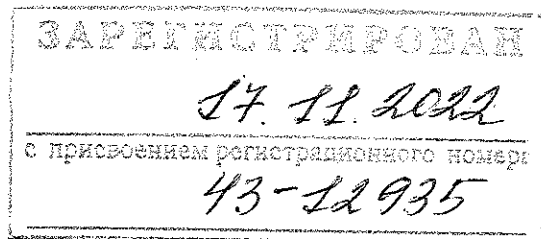 ЗАРЕГИСТРИРОВАН
17. 11. 2022
с присвоением регистрационного номера
43-12935